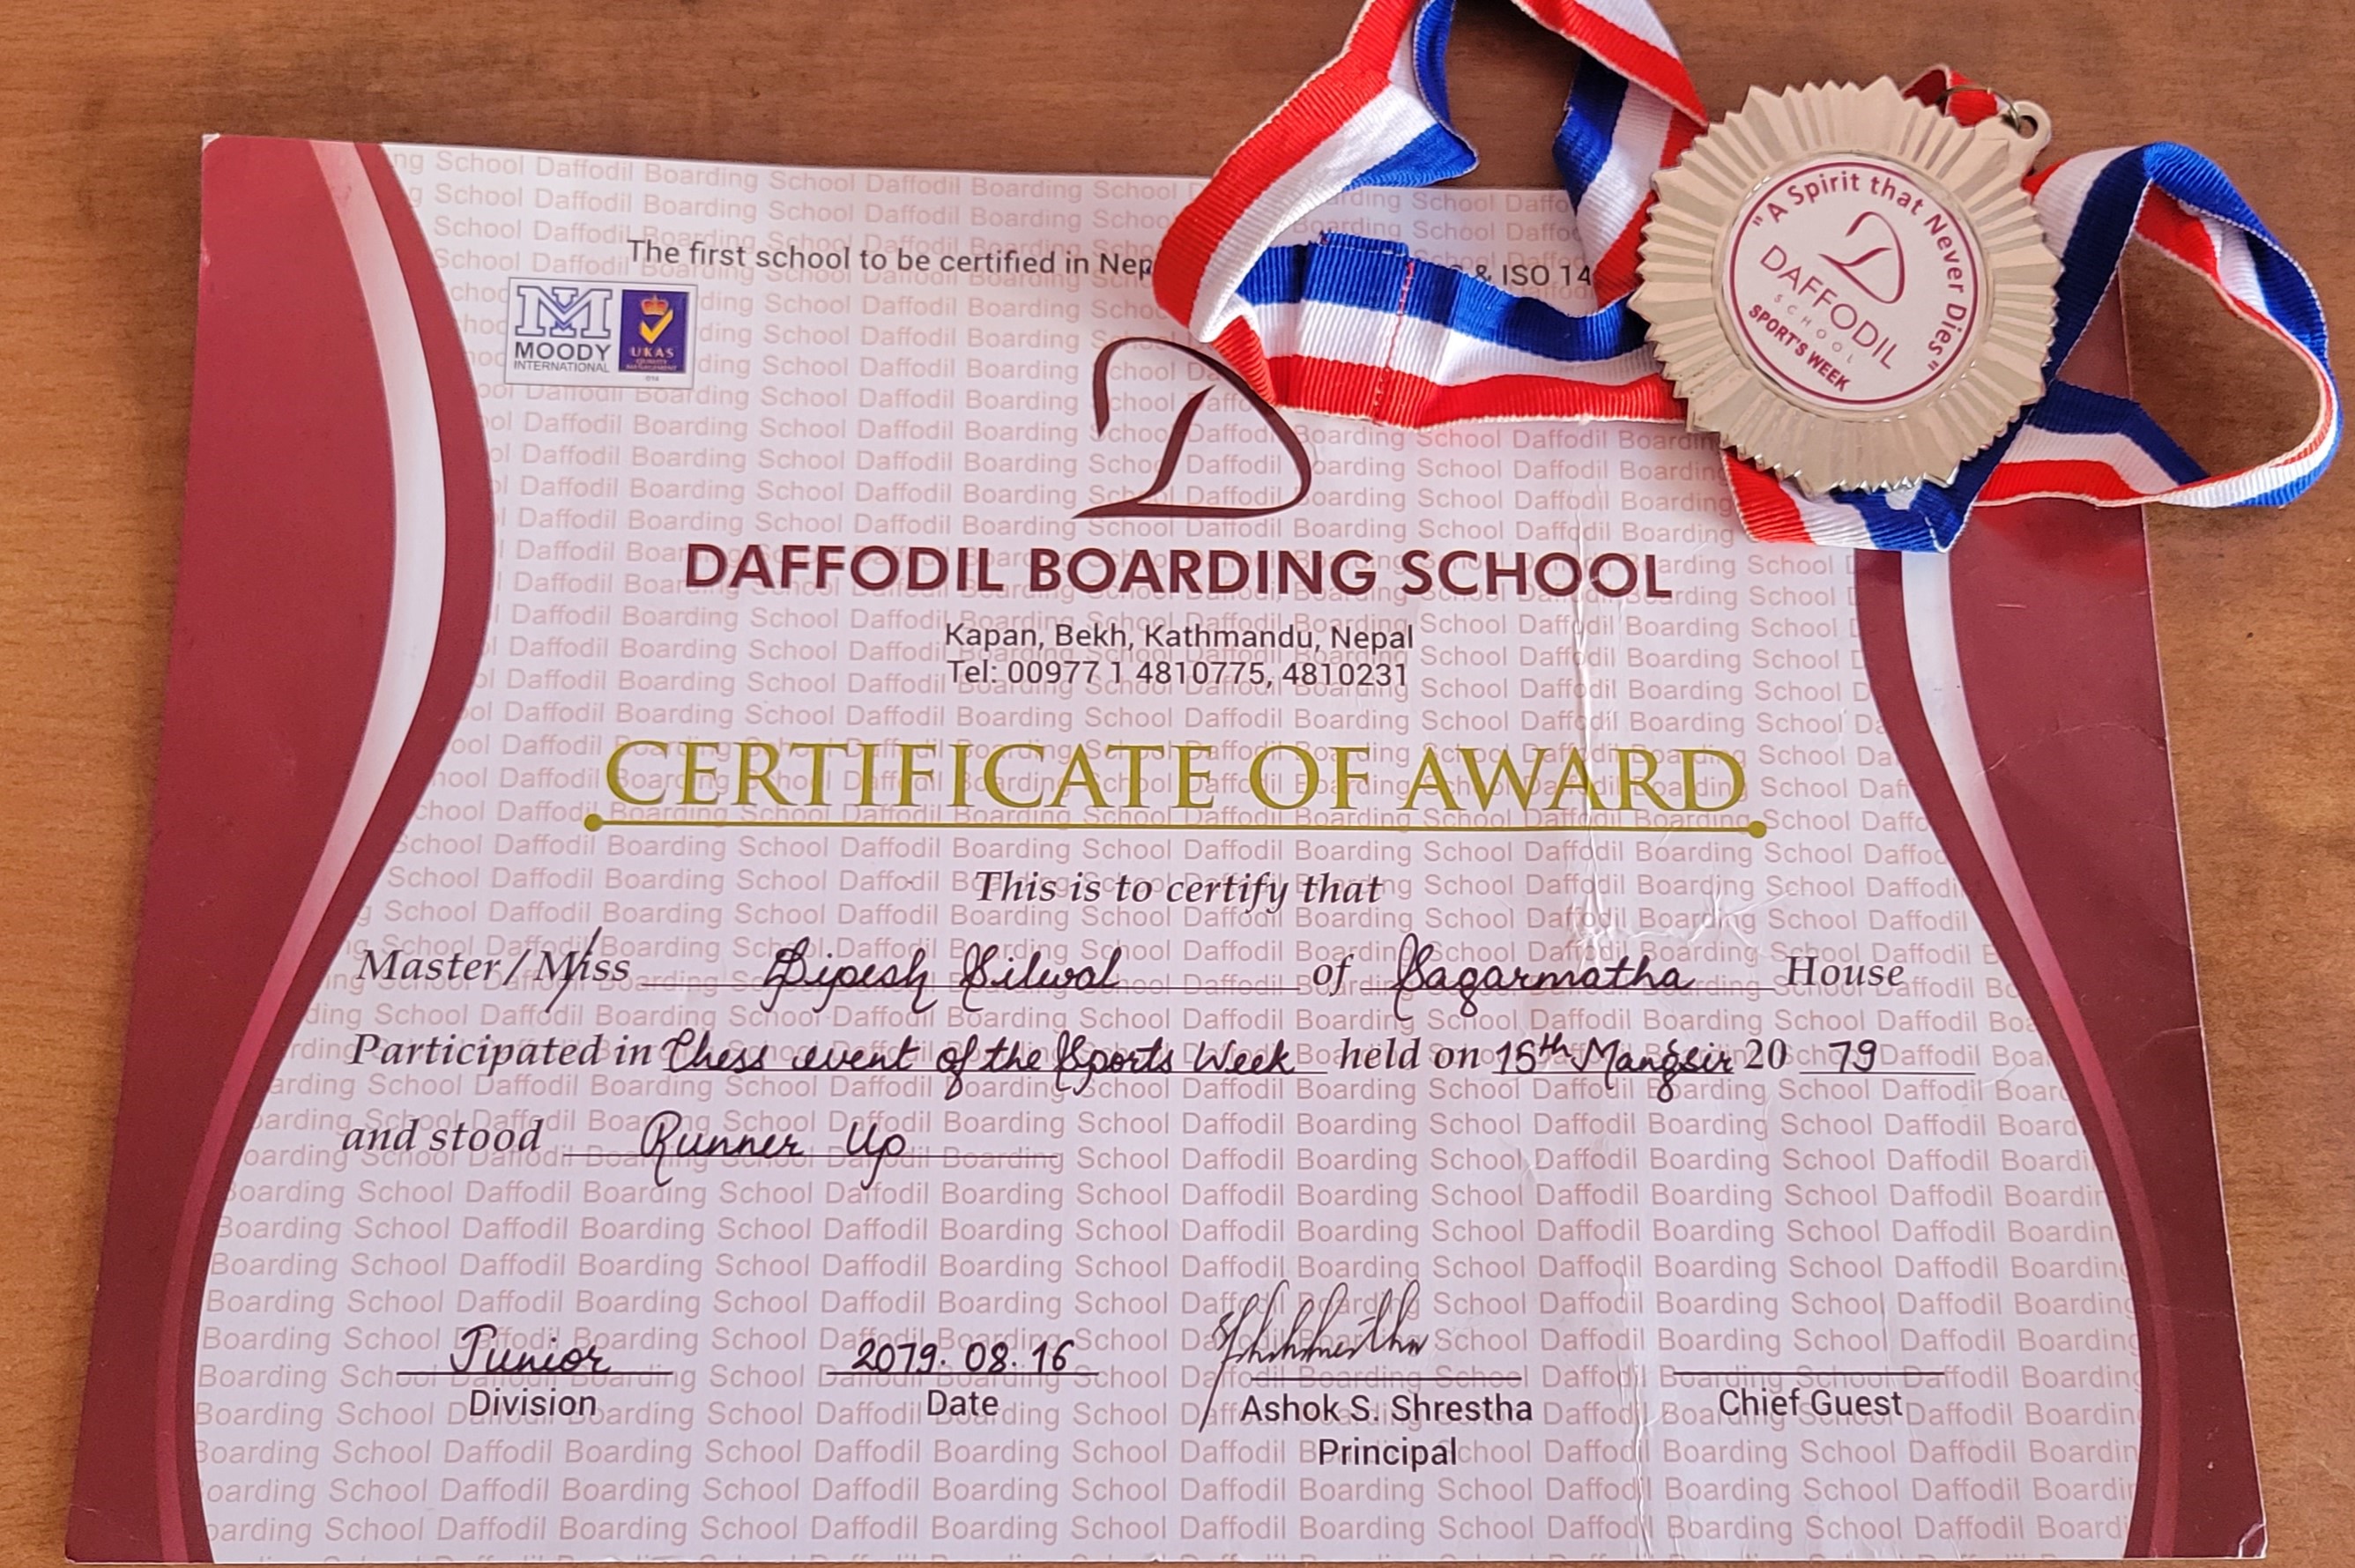 The first school to be certified in Nep
& ISO 14
MOODY
INTERNATIONAL
UKAS
QUALITY
MANAGEMENT
014
"A Spirit that Never Dies"
DAFFODIL
SCHOOL
SPORT'S WEEK
DAFFODIL BOARDING SCHOOL
Kapan, Bekh, Kathmandu, Nepal
Tel: 00977 1 4810775, 4810231
CERTIFICATE OF AWARD
This is to certify that
Master/Miss Dipesh Silwal of Sagarmatha House
Participated in Chess event of the Sports Week held on 15th Mangsir 20 79
and stood Runner Up
Junior 2079.08.16
Division Date Ashok S. Shrestha Chief Guest
Principal